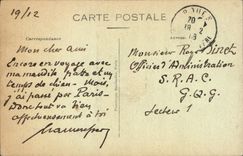 19/12
CARTE POSTALE
Correspondance
Mon cher ami
Encore en voyage avec
ma maudite patte et un
temps de chien - Mais,
j'ai passé par Paris -
Donc tout va bien
affectueusement à toi
Monsieur Roger
Officier d'Administration
S.R.A.C.
G.Q.G.
Secteur 1